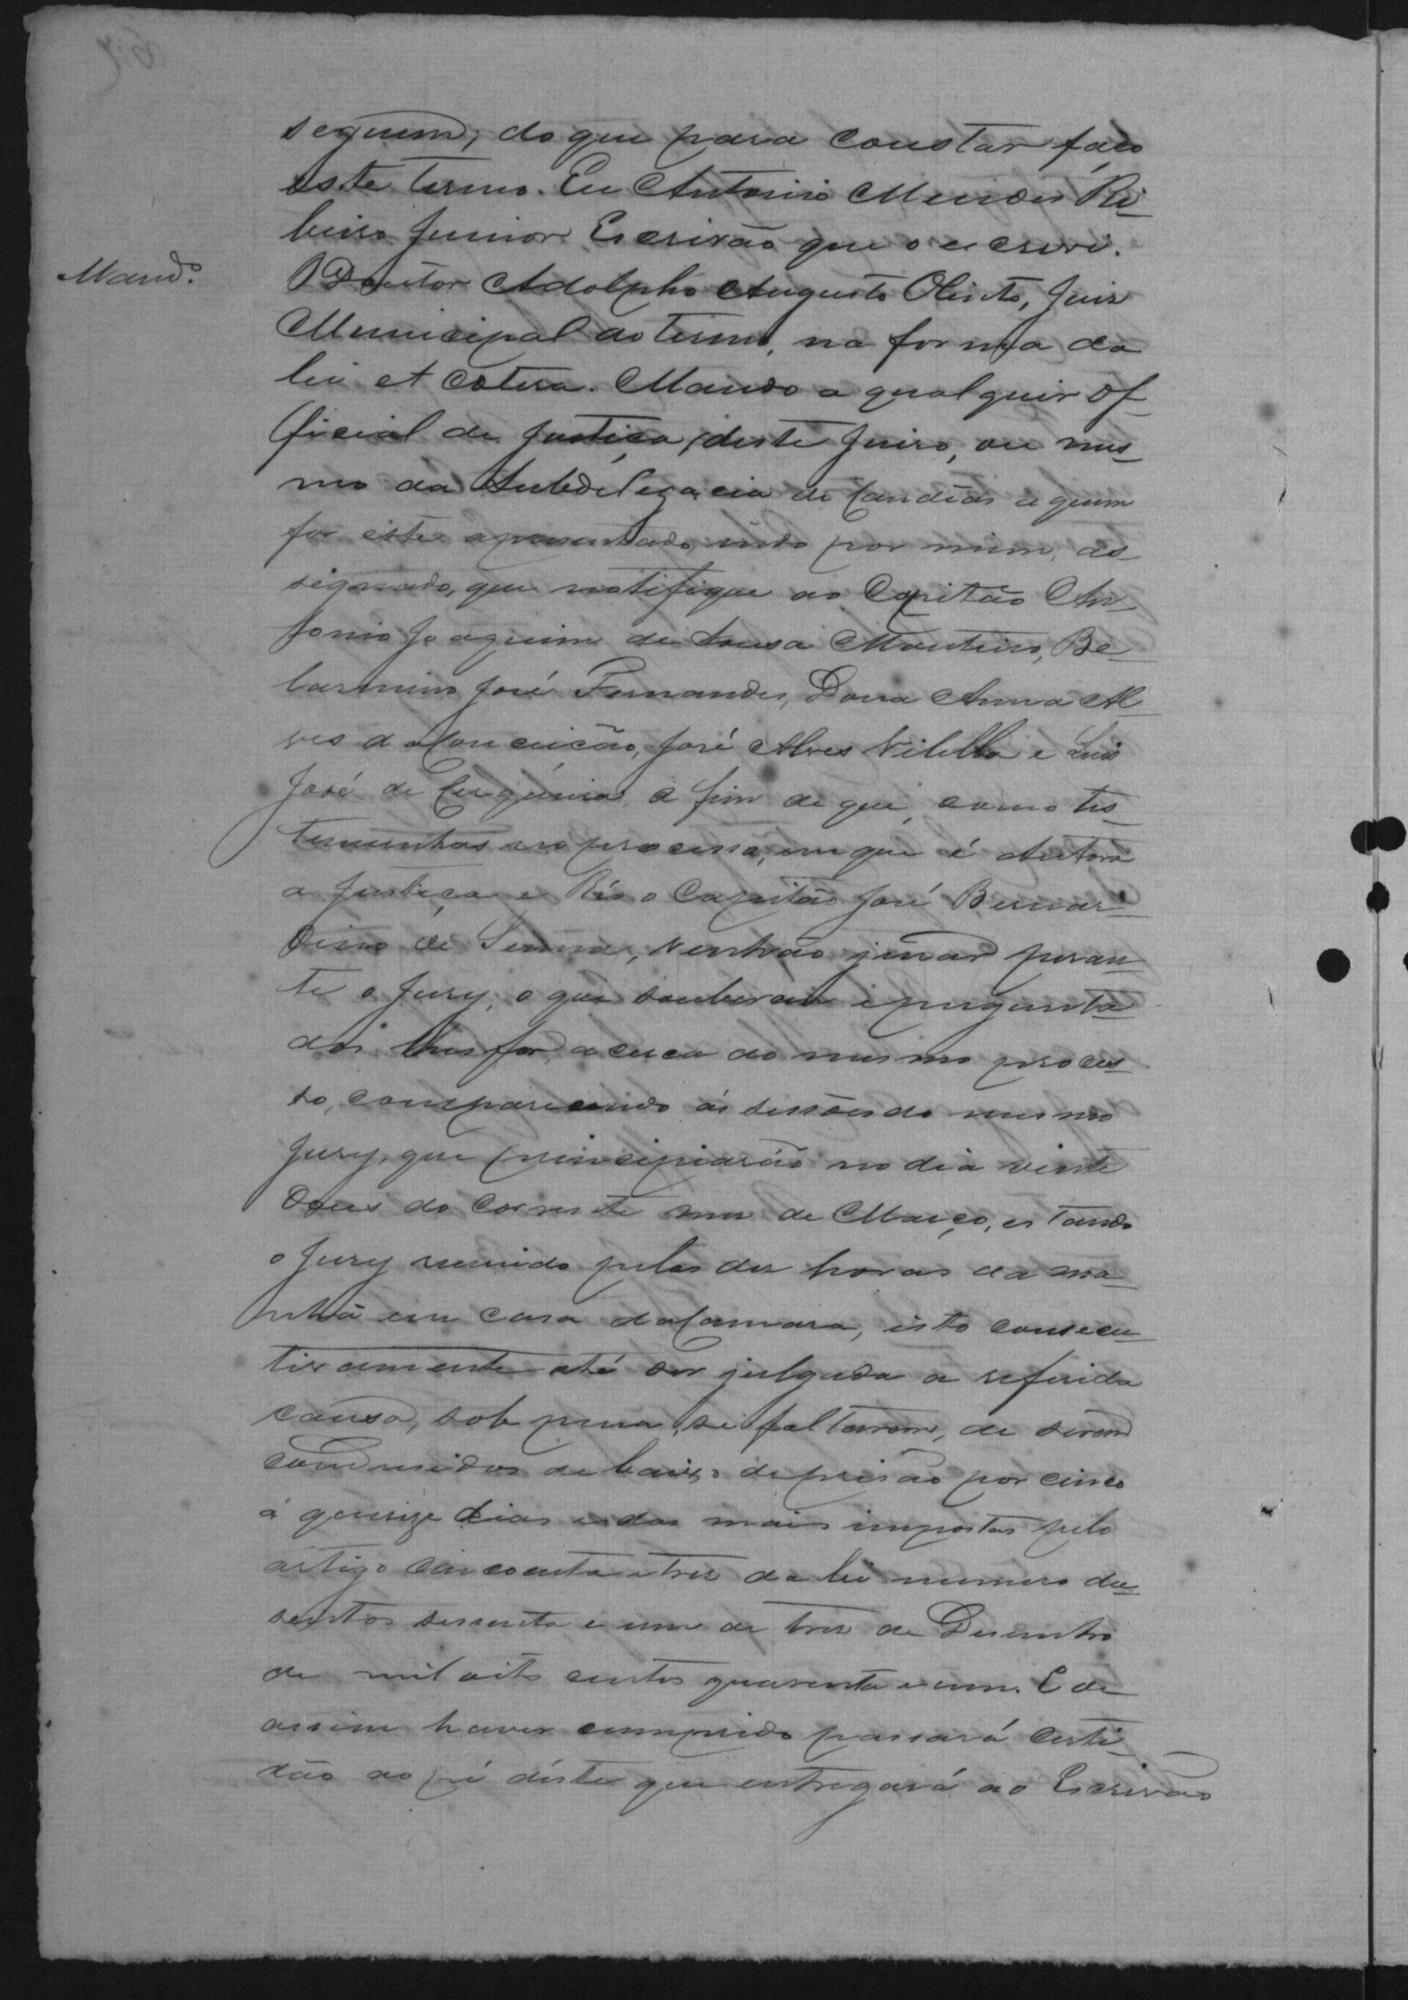 seguem; do que para constar faço
este termo. Eu Antonio Mendes Ri-
beiro Junior Escrivão que o escrevi.
Mand.º
O Doutor Adolpho Augusto Olinto, Juis
Municipal do termo, na forma da
lei et cetera. Mando a qualquer Of-
ficial de Justiça, deste Juiso, ou mes-
mo da Subdelegacia de Candêas a quem
for este apresentado, indo por mim, as
signado, que notifique ao Capitão An
tonio Joaquim de Sousa Monteiro, Be-
larmino José Fernandes, Dona Anna Al-
ves da Conceicão, José Alves Vilella e Luis
José de Eugenia a fim de que, como tes-
temunhas no processo, em que é Autora
a Justiça e Réo o Capitão José Bernar-
dino de Senna, venhão jurar peran-
te o Jury, o que souberem e pergunta-
do lhes for, acerca do mesmo proces-
so, comparecendo ás sessões do mesmo
Jury, que principiarão no dia vinte
dous do corrente mes de Março, estando
o Jury reunido pelas des horas da ma-
nhã em casa da Camara, isto consecu-
tivamente até ser julgada a referida
causa, sob pena, se faltarem, de serem
condusidos debaixo de prisão por cinco
á quinze dias e das mais impostas pelo
artigo cincoenta e tres da lei numero du-
sentos sessenta e um de tres de Desembro
de mil oito centos quarenta e um. E de
assim haver cumprido passará certi-
dão ao pé déste que entregará ao Escrivão